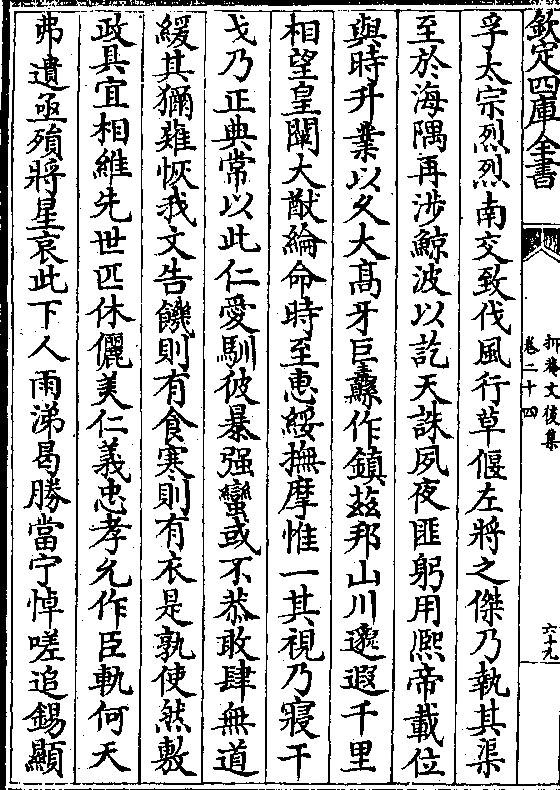 欽定四庫全書
抑菴文後集
卷二十四
六十九
孚太宗烈烈南交致伐風行草偃左將之傑乃執其渠
至於海隅再涉鯨波以訖天誅夙夜匪躬用熈帝載位
與時升業以久大髙牙巨纛作鎮兹邦山川邈遐千里
相望皇闡大猷綸命時至惠綏撫摩惟一其視乃寢干
戈乃正典常以此仁愛馴彼暴强蠻或不恭敢肆無道
緩其獮薙恢我文告饑則有食寒則有衣是孰使然敷
政具宜相維先世匹休儷美仁義忠孝允作臣軌何天
弗遺亟殞將星哀此下人雨涕曷勝當宁悼嗟追錫顯